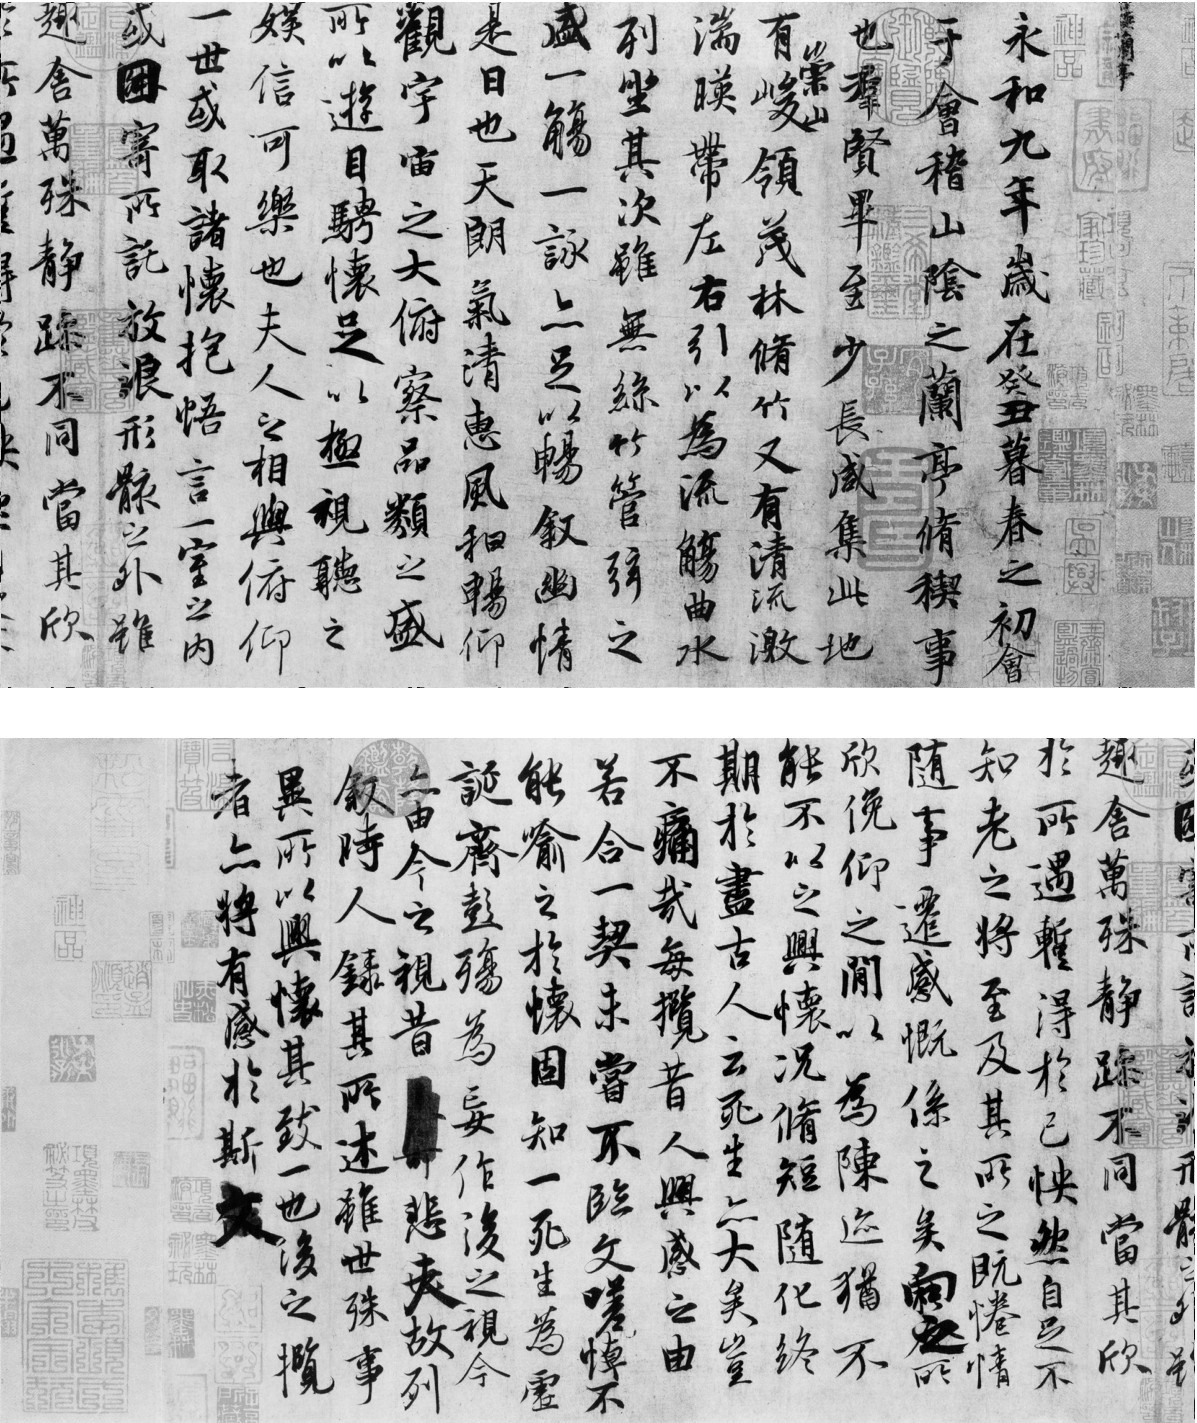 永和九年歲在癸丑暮春之初會
于會稽山陰之蘭亭脩稧事
也羣賢畢至少長咸集此地
有崇山峻領茂林脩竹又有清流激
湍暎帶左右引以為流觴曲水
列坐其次雖無絲竹管弦之
盛一觴一詠亦足以暢敘幽情
是日也天朗氣清惠風和暢仰
觀宇宙之大俯察品類之盛
所以遊目騁懷足以極視聽之
娛信可樂也夫人之相與俯仰
一世或取諸懷抱悟言一室之內
或因寄所託放浪形骸之外雖
趣舍萬殊静躁不同當其欣
趣舍萬殊静躁不同當其欣
於所遇蹔得於己怏然自足不
知老之將至及其所之既惓情
隨事遷感慨係之矣向之所
欣俛仰之間以為陳迹猶不
能不以之興懷況脩短隨化終
期於盡古人云死生亦大矣豈
不痛哉每攬昔人興感之由
若合一契未嘗不臨文嗟悼不
能喻之於懷固知一死生為虛
誕齊彭殤為妄作後之視今
亦由今之視昔悲夫故列
敘時人錄其所述雖世殊事
異所以興懷其致一也後之攬
者亦將有感於斯文